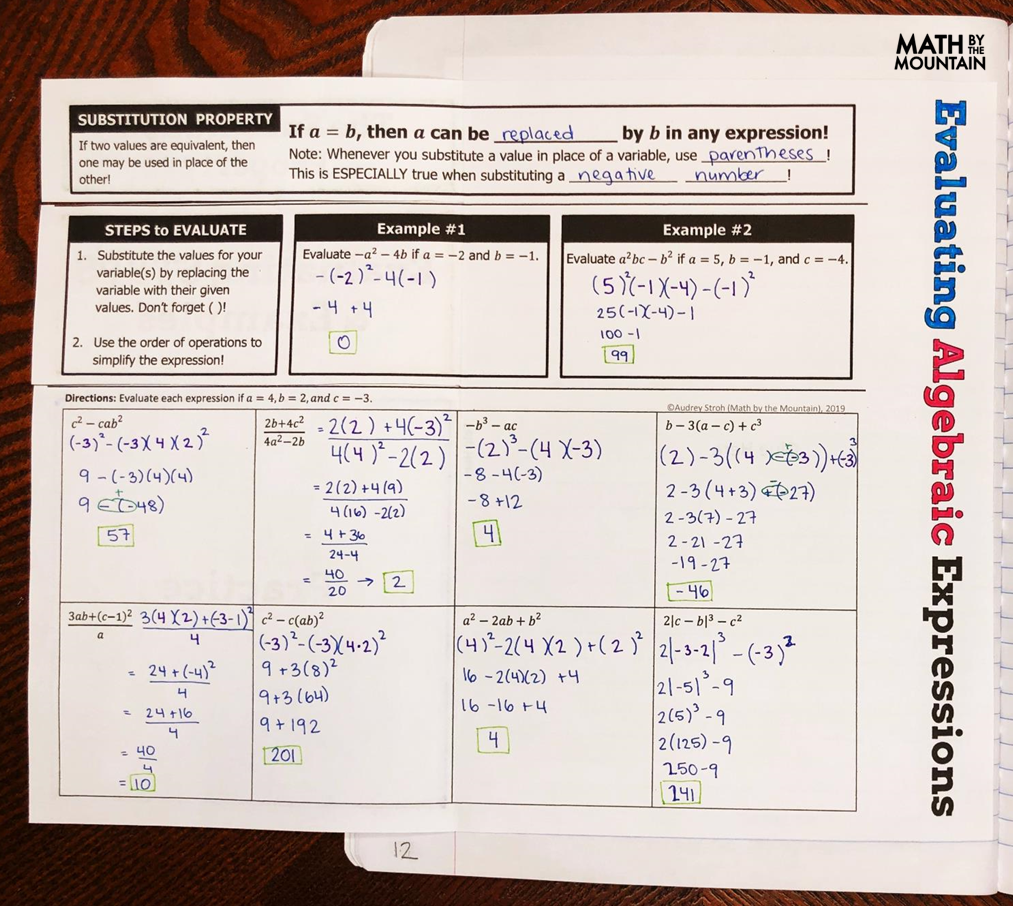 MATH BY THE MOUNTAIN
Evaluating Algebraic Expressions
SUBSTITUTION PROPERTY
If two values are equivalent, then
one may be used in place of the
other!
If a = b, then a can be replaced by b in any expression!
Note: Whenever you substitute a value in place of a variable, use parentheses!
This is ESPECIALLY true when substituting a negative number!
STEPS to EVALUATE
1. Substitute the values for your
variable(s) by replacing the
variable with their given
values. Don't forget ( )!
2. Use the order of operations to
simplify the expression!
Example #1
Evaluate −a² − 4b if a = −2 and b = −1.
-(-2)²-4(-1)
-4 +4
0
Example #2
Evaluate a²bc − b² if a = 5, b = −1, and c = −4.
(5)²(-1)(-4)-(-1)²
25(-1)(-4)-1
100-1
99
Directions: Evaluate each expression if a = 4, b = 2, and c = −3.
©Audrey Stroh (Math by the Mountain), 2019
c² − cab²
(-3)²-(-3)(4)(2)²
9-(-3)(4)(4)
+
9-(-48)
57
2b+4c²/4a²−2b = 2(2)+4(-3)²/4(4)²-2(2)
= 2(2)+4(9)/4(16)-2(2)
= 4+36/24-4
= 40/20 → 2
−b³ − ac
-(2)³-(4)(-3)
-8-4(-3)
-8+12
4
b − 3(a − c) + c³
(2)-3((4)-(-3))+(-3)³
2-3(4+3)+(-27)
2-3(7)-27
2-21-27
-19-27
-46
3ab+(c−1)²/a 3(4)(2)+(-3-1)²/4
= 24+(-4)²/4
= 24+16/4
= 40/4
= 10
c² − c(ab)²
(-3)²-(-3)(4·2)²
9+3(8)²
9+3(64)
9+192
201
a² − 2ab + b²
(4)²-2(4)(2)+(2)²
16-2(4)(2)+4
16-16+4
4
2|c − b|³ − c²
2|-3-2|³-(-3)²
2|-5|³-9
2(5)³-9
2(125)-9
250-9
241
12